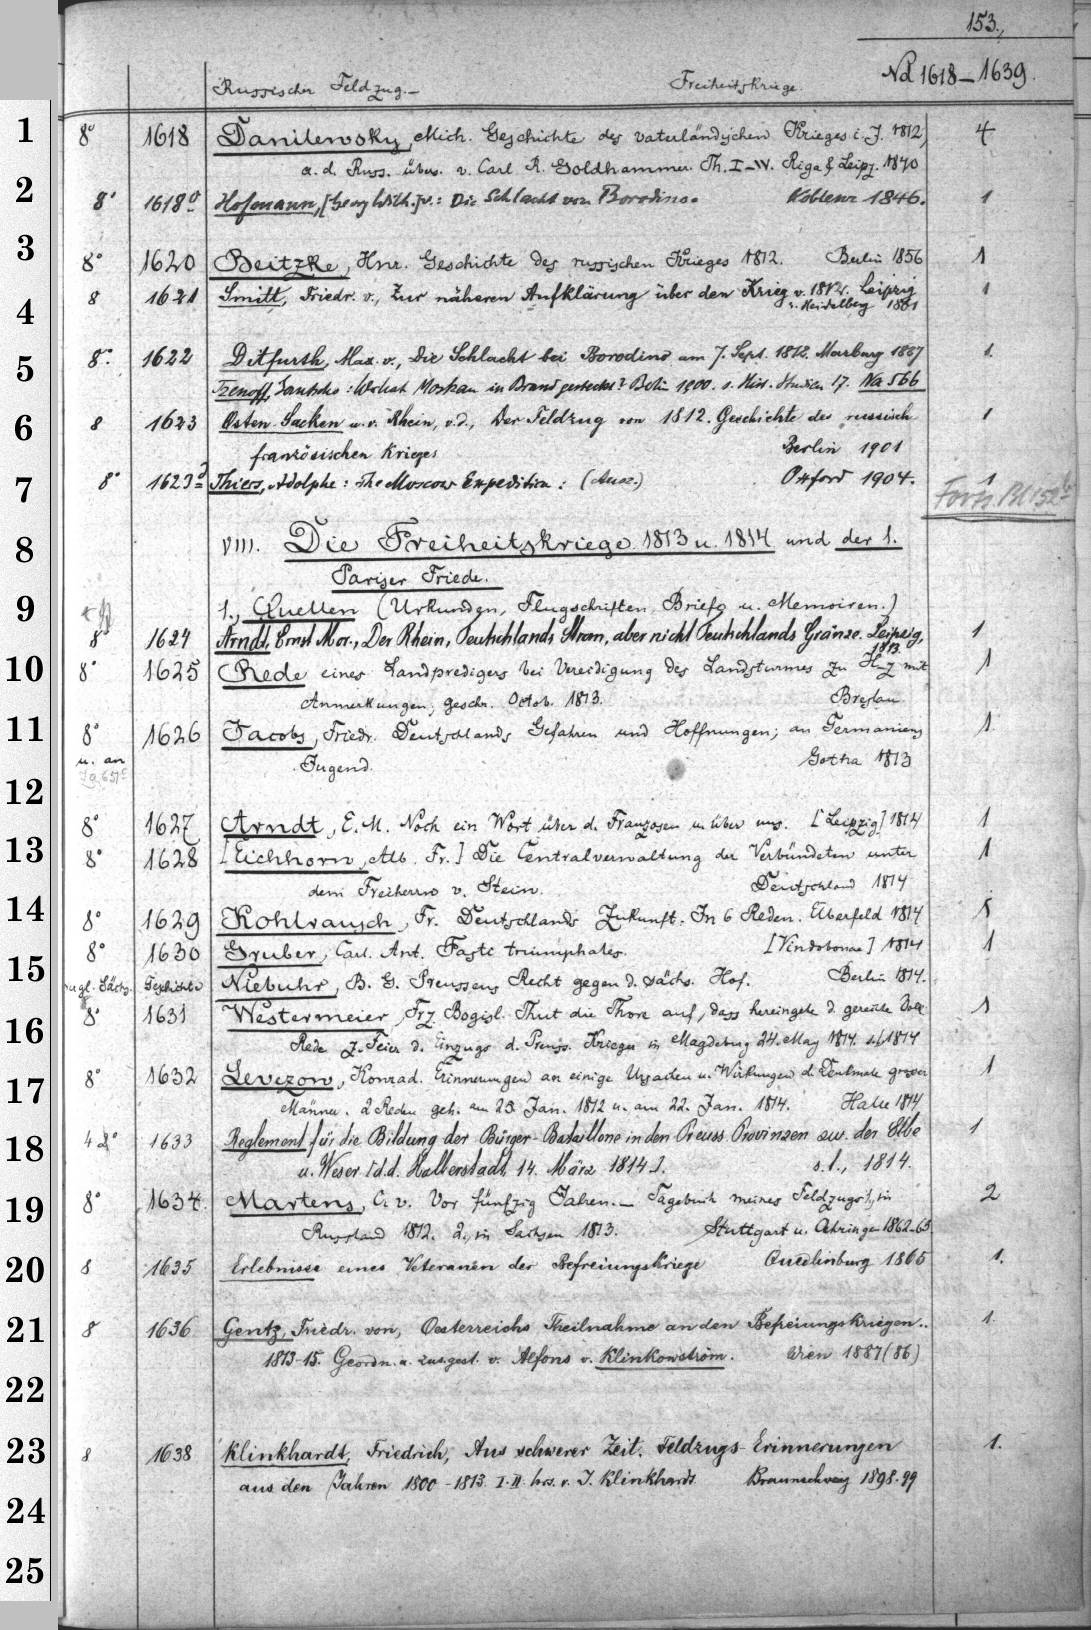 153.
Russischer Feldzug.— Freiheitskriege. Nd 1618—1639.
1
8° 1618 Danilewsky, Mich. Geschichte des vaterländischen Krieges i. J. 1812, 4
a. d. Russ. übers. v. Carl R. Goldhammer. Th. I—IV. Riga & Leipz. 1840
2
8° 1618a Hofmann, [Georg Wilh.] v.: Die Schlacht von Borodino. Koblenz 1846. 1
3
8° 1620 Beitzke, Hnr. Geschichte des russischen Krieges 1812. Berlin 1856 1
8 1621 Smitt, Friedr. v., Zur näheren Aufklärung über den Krieg v. 1812. Leipzig 1
4
u. Heidelberg 1861
5
8° 1622 Ditfurth, Max. v., Die Schlacht bei Borodino am 7. Sept. 1812. Marburg 1887 1.
Tzenoff, Gantscho: Wer hat Moskau in Brand gesteckt? Berlin 1900. s. Hist. Studien 17. Na 566
6
8 1623 Osten-Sacken u. v. Rhein, v. d., Der Feldzug von 1812. Geschichte des russisch- 1
französischen Krieges Berlin 1901
7
8° 1623d Thiers, Adolphe: The Moscow Expedition: (Ausz.) Oxford 1904. 1
Forts. Bl. 152b
8
VIII. Die Freiheitskriege 1813 u. 1814 und der 1.
Pariser Friede.
9
1., Quellen (Urkunden, Flugschriften, Briefe u. Memoiren.)
8° 1624 Arndt, Ernst Mor., Der Rhein, Teutschlands Strom, aber nicht Teutschlands Gränze. Leipzig, 1
1813.
10
8° 1625 Rede eines Landpredigers bei Vereidigung des Landsturmes zu H..z mit 1
Anmerkungen, geschr. Octob. 1813. Breslau
11
8° 1626 Jacobs, Friedr. Deutschlands Gefahren und Hoffnungen; an Germaniens 1
u. an
Jugend. Gotha 1813
12
8° 1627 Arndt, E. M. Noch ein Wort über d. Franzosen u. über uns. [Leipzig] 1814 1
13
8° 1628 [Eichhorn, Alb. Fr.] Die Centralverwaltung der Verbündeten unter 1
dem Freiherrn v. Stein. Deutschland 1814
14
8° 1629 Kohlrausch, Fr. Deutschlands Zukunft. In 6 Reden. Elberfeld 1814 1
8° 1630 Gruber, Carl. Ant. Fasti triumphales. [Vindobonae] 1814 1
15
vgl. Sächs. Geschichte Niebuhr, B. G. Preussens Recht gegen d. sächs. Hof. Berlin 1814.
8° 1631 Westermeier, Frz. Bogisl. Thut die Thore auf, dass hereingehe d. gerechte Volk 1
16
Rede z. Feier d. Einzugs d. Preuss. Krieger in Magdeburg 24. May 1814. s.l. 1814
17
8° 1632 Levezow, Konrad. Erinnerungen an einige Ursachen u. Wirkungen d. Denkmale grosser 1
Männer. 2 Reden geh. am 25. Jan. 1812 u. am 22. Jan. 1814. Halle 1814
18
4 2° 1633 Reglement für die Bildung der Bürger-Bataillone in den Preuss. Provinzen zw. der Elbe 1
u. Weser [d.d. Halberstadt, 14. März 1814]. s.l., 1814.
19
8° 1634. Martens, C. v. Vor fünfzig Jahren.— Tagebuch meines Feldzugs 1, in 2
Russland 1812. 2, in Sachsen 1813. Stuttgart u. Oehringen 1862-63.
20
8 1635 Erlebnisse eines Veteranen der Befreiungskriege Quedlinburg 1865 1.
21
8 1636 Gentz, Friedr. von, Oesterreichs Theilnahme an den Befreiungskriegen.. 1.
1813-15. Geordn. u. zus.gest. v. Alfons v. Klinkowström. Wien 1887 (86)
22
23
8 1638 Klinkhardt, Friedrich, Aus schwerer Zeit. Feldzugs-Erinnerungen 1.
aus den Jahren 1800-1813. I. II. hrs. v. J. Klinkhardt Braunschweig 1898-99
24
25